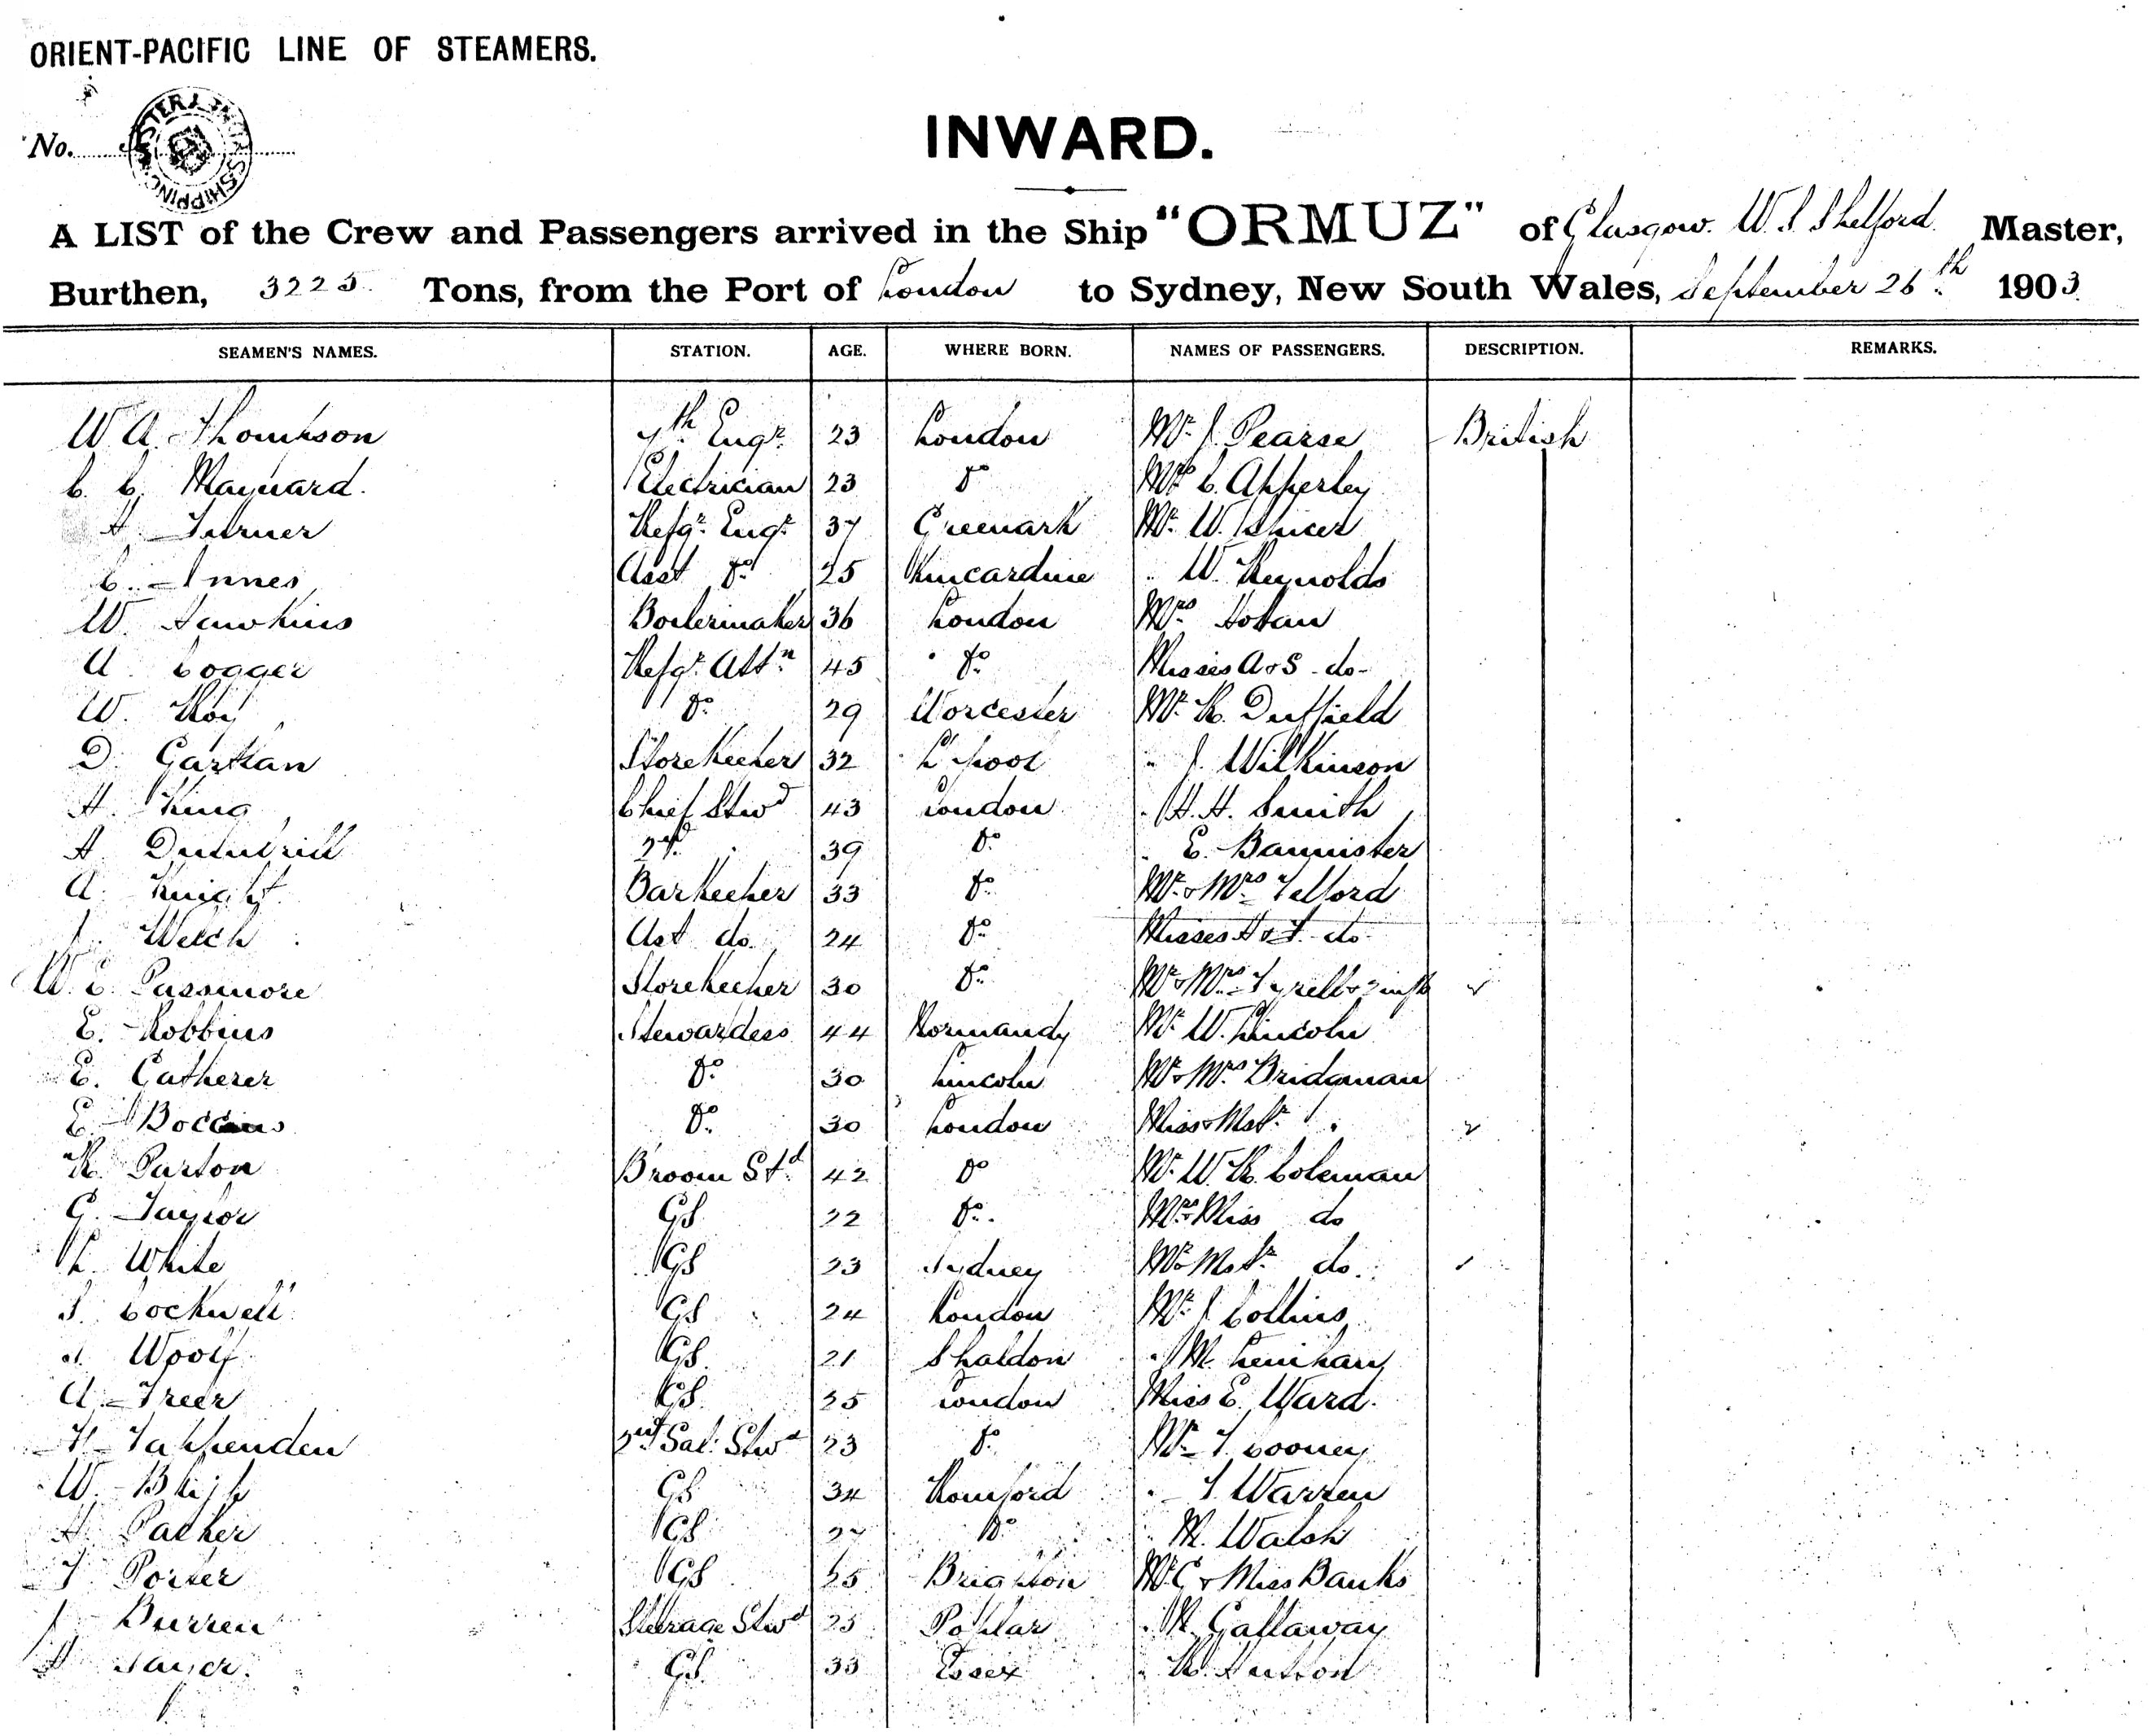 ORIENT-PACIFIC LINE OF STEAMERS.
No.
SHIPPING
INWARD.
A LIST of the Crew and Passengers arrived in the Ship "ORMUZ" of Glasgow. W. S. Shelford Master,
Burthen, 3225 Tons, from the Port of London to Sydney, New South Wales, September 26th 1903
SEAMEN'S NAMES. STATION. AGE. WHERE BORN. NAMES OF PASSENGERS. DESCRIPTION. REMARKS.
W. A. Thompson 7th Engr. 23 London Mr. J. Pearse British
C. C. Maynard. Electrician 23 Do C. Apperley
Turner Refgr. Engr. 37 Greenark Mr. W. Spicer
C. Innes Asst Do 25 Kincardine W. Reynolds
W. Hawkins Boilermaker 36 London Mrs Hoban
A. Cogger Refgr. Attn 45 Do Misses A & S do
W. Roy Do 29 Worcester Mr. R. Duffield
D. Gartlan Storekeeper 32 L'pool J. Wilkinson
H. King Chief Stwd 43 London H. H. Smith
A. 2nd 39 Do E. Bannister
A. Knight Barkeeper 33 Do Mr. & Mrs Telford
J. Welch Ast do. 24 Do Misses do
W. E. Passmore Storekeeper 30 Do Mr & Mrs Tyrell &
E. Robbins Stewardess 44 Normandy Mr. W. Lincoln
E. Catherer Do 30 Lincoln Mr & Mrs Bridgman
E. Do 30 London Miss & Mstr
R. Parton Broom Std. 42 Do Mr. W. R. Coleman
G. Taylor GS 22 Do Mrs & Miss do
White GS 23 Sydney Mr & Mstr do.
S. Cockwell GS 24 London Mr. J. Collins
Woolf GS 21 Shaldon M. Lenihan
A. Freer GS 35 London Miss E. Ward.
H. Tappenden 2nd Sal. Stwd 23 Do Mr. T. Cooney
W. Bligh GS 34 Romford T. Warren
H. Packer GS Do M. Walsh
T. Porter GS 25 Brighton Mr C & Miss Banks
J. Burren Steerage Stwd 25 Poplar Gallaway
GS 33 Essex